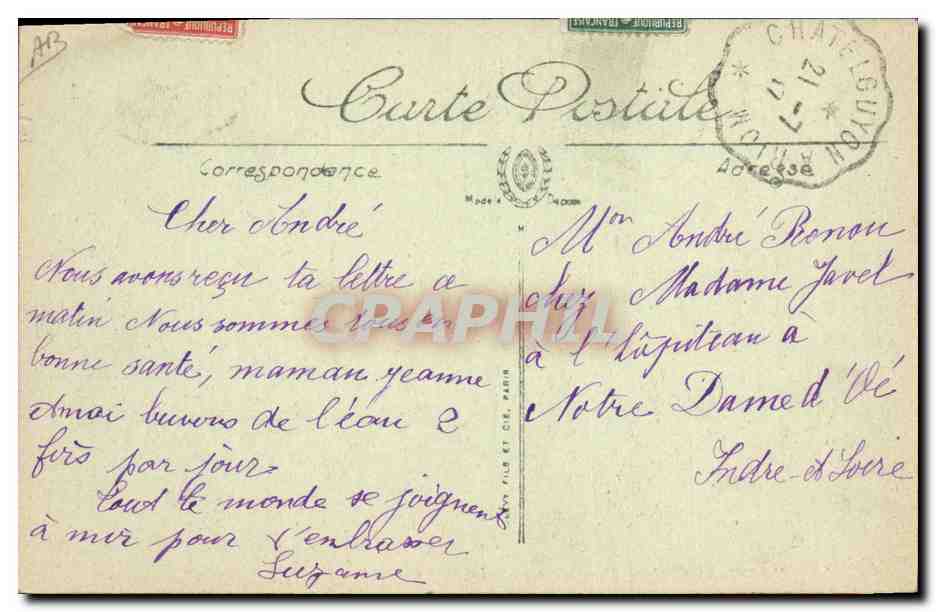 AB
REPUBLIQUE FRANÇAISE
REPUBLIQUE FRANÇAISE
CHATELGUYON A RIOM
21 -7
17
Carte Postale
Correspondance
Adresse
Modèle Déposé
Cher André
Nous avons reçu ta lettre ce
matin Nous sommes tous en
bonne santé, maman Jeanne
& moi buvons de l'eau 2
fois par jour
Tout le monde se joignent
à moi pour t'embrasser
Suzanne
M
LEVY FILS ET CIE, PARIS
Mon André Renou
chez Madame Javet
à l'hôpiteau à
Notre Dame d'Oé
Indre-et-Loire
CPAPHIL